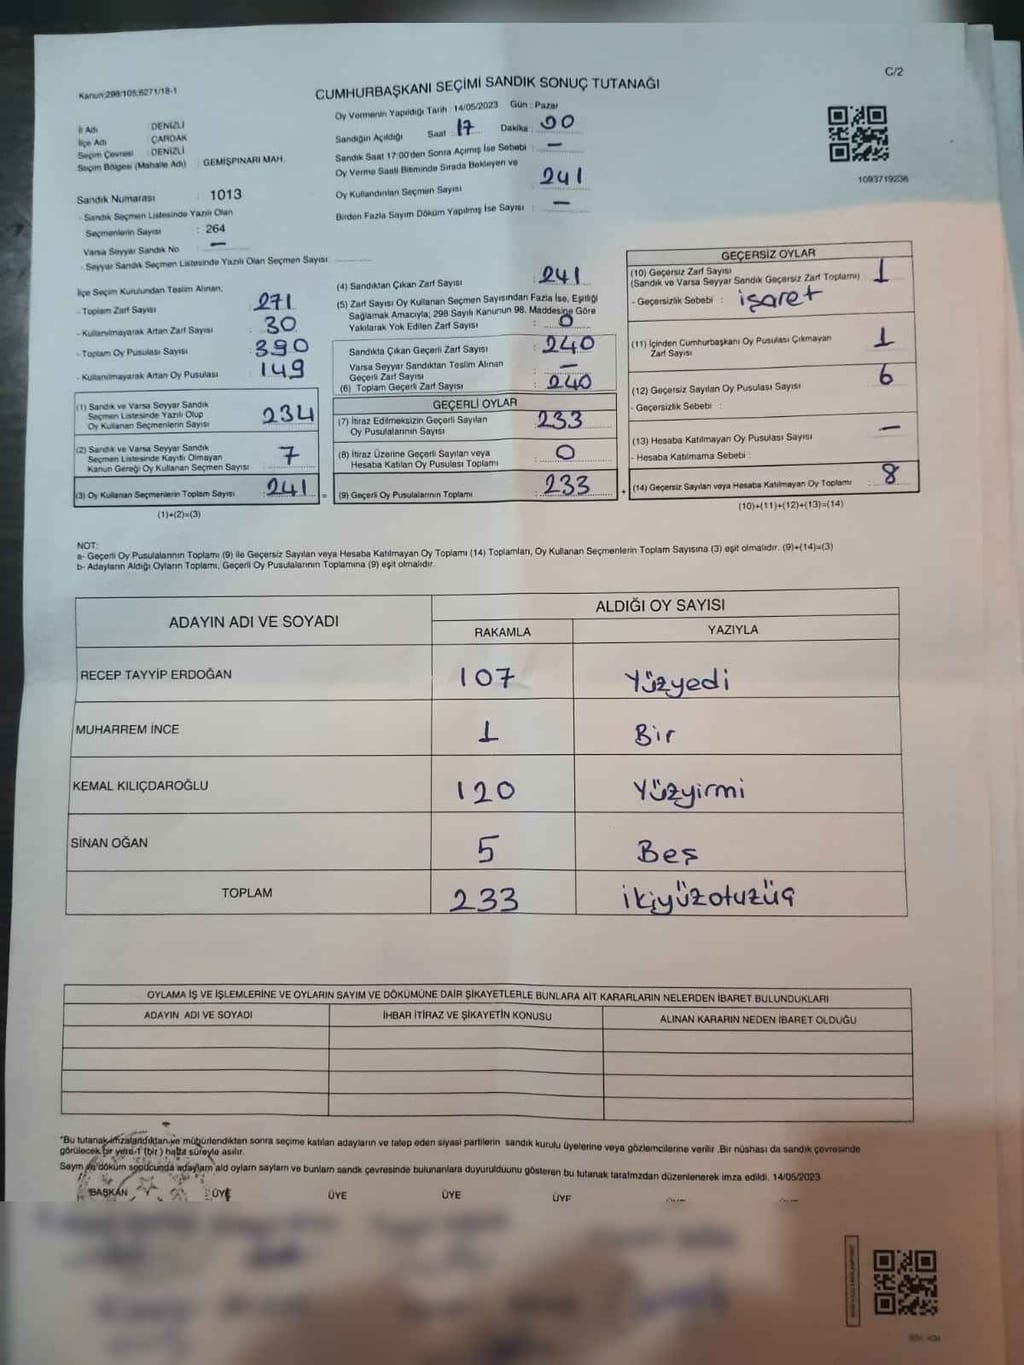 C/2
Kanun:298/105;6271/18-1
CUMHURBAŞKANI SEÇİMİ SANDIK SONUÇ TUTANAĞI
İl Adı : DENİZLİ
İlçe Adı : ÇARDAK
Seçim Çevresi : DENİZLİ
Seçim Bölgesi (Mahalle Adı) : GEMİŞPINARI MAH.
Sandık Numarası : 1013
- Sandık Seçmen Listesinde Yazılı Olan
Seçmenlerin Sayısı : 264
Varsa Seyyar Sandık No : —
- Seyyar Sandık Seçmen Listesinde Yazılı Olan Seçmen Sayısı :
Oy Vermenin Yapıldığı Tarih : 14/05/2023 Gün : Pazar
Sandığın Açıldığı Saat : 17 Dakika : 00
Sandık Saat 17:00'den Sonra Açımış İse Sebebi : —
Oy Verme Saati Bitiminde Sırada Bekleyen ve
Oy Kullandırılan Seçmen Sayısı : 241
Birden Fazla Sayım Döküm Yapılmış İse Sayısı : —
1093719236
İlçe Seçim Kurulundan Teslim Alınan;
- Toplam Zarf Sayısı : 271
- Kullanılmayarak Artan Zarf Sayısı : 30
- Toplam Oy Pusulası Sayısı : 390
- Kullanılmayarak Artan Oy Pusulası : 149
(1) Sandık ve Varsa Seyyar Sandık
Seçmen Listesinde Yazılı Olup
Oy Kullanan Seçmenlerin Sayısı : 234
(2) Sandık ve Varsa Seyyar Sandık
Seçmen Listesinde Kayıtlı Olmayan
Kanun Gereği Oy Kullanan Seçmen Sayısı : 7
(3) Oy Kullanan Seçmenlerin Toplam Sayısı : 241
(1)+(2)=(3)
(4) Sandıktan Çıkan Zarf Sayısı : 241
(5) Zarf Sayısı Oy Kullanan Seçmen Sayısından Fazla İse, Eşitliği
Sağlamak Amacıyla; 298 Sayılı Kanunun 98. Maddesine Göre
Yakılarak Yok Edilen Zarf Sayısı : 0
Sandıkta Çıkan Geçerli Zarf Sayısı : 240
Varsa Seyyar Sandıktan Teslim Alınan
Geçerli Zarf Sayısı : —
(6) Toplam Geçerli Zarf Sayısı : 240
GEÇERLİ OYLAR
(7) İtiraz Edilmeksizin Geçerli Sayılan
Oy Pusulalarının Sayısı : 233
(8) İtiraz Üzerine Geçerli Sayılan veya
Hesaba Katılan Oy Pusulası Toplamı : 0
(9) Geçerli Oy Pusulalarının Toplamı : 233
GEÇERSİZ OYLAR
(10) Geçersiz Zarf Sayısı
(Sandık ve Varsa Seyyar Sandık Geçersiz Zarf Toplamı) : 1
- Geçersizlik Sebebi : işaret
(11) İçinden Cumhurbaşkanı Oy Pusulası Çıkmayan
Zarf Sayısı : 1
(12) Geçersiz Sayılan Oy Pusulası Sayısı : 6
- Geçersizlik Sebebi :
(13) Hesaba Katılmayan Oy Pusulası Sayısı : —
- Hesaba Katılmama Sebebi :
(14) Geçersiz Sayılan veya Hesaba Katılmayan Oy Toplamı : 8
(10)+(11)+(12)+(13)=(14)
NOT:
a- Geçerli Oy Pusulalarının Toplamı (9) ile Geçersiz Sayılan veya Hesaba Katılmayan Oy Toplamı (14) Toplamları, Oy Kullanan Seçmenlerin Toplam Sayısına (3) eşit olmalıdır. (9)+(14)=(3)
b- Adayların Aldığı Oyların Toplamı, Geçerli Oy Pusulalarının Toplamına (9) eşit olmalıdır.
ADAYIN ADI VE SOYADI ALDIĞI OY SAYISI
RAKAMLA YAZIYLA
RECEP TAYYİP ERDOĞAN 107 Yüzyedi
MUHARREM İNCE 1 Bir
KEMAL KILIÇDAROĞLU 120 Yüzyirmi
SİNAN OĞAN 5 Beş
TOPLAM 233 ikiyüzotuzüç
OYLAMA İŞ VE İŞLEMLERİNE VE OYLARIN SAYIM VE DÖKÜMÜNE DAİR ŞİKAYETLERLE BUNLARA AİT KARARLARIN NELERDEN İBARET BULUNDUKLARI
ADAYIN ADI VE SOYADI İHBAR İTİRAZ VE ŞİKAYETİN KONUSU ALINAN KARARIN NEDEN İBARET OLDUĞU
*Bu tutanak imzalandıktan ve mühürlendikten sonra seçime katılan adayların ve talep eden siyasi partilerin sandık kurulu üyelerine veya gözlemcilerine verilir .Bir nüshası da sandık çevresinde
görülecek bir yere 1 (bir) hafta süreyle asılır.
Sayım ve döküm sonucunda adayların aldı oyların sayların ve bunların sandık çevresinde bulunanlara duyurulduunu gösteren bu tutanak tarafmzdan düzenlenerek imza edildi. 14/05/2023
BAŞKAN ÜYE ÜYE ÜYE ÜYE